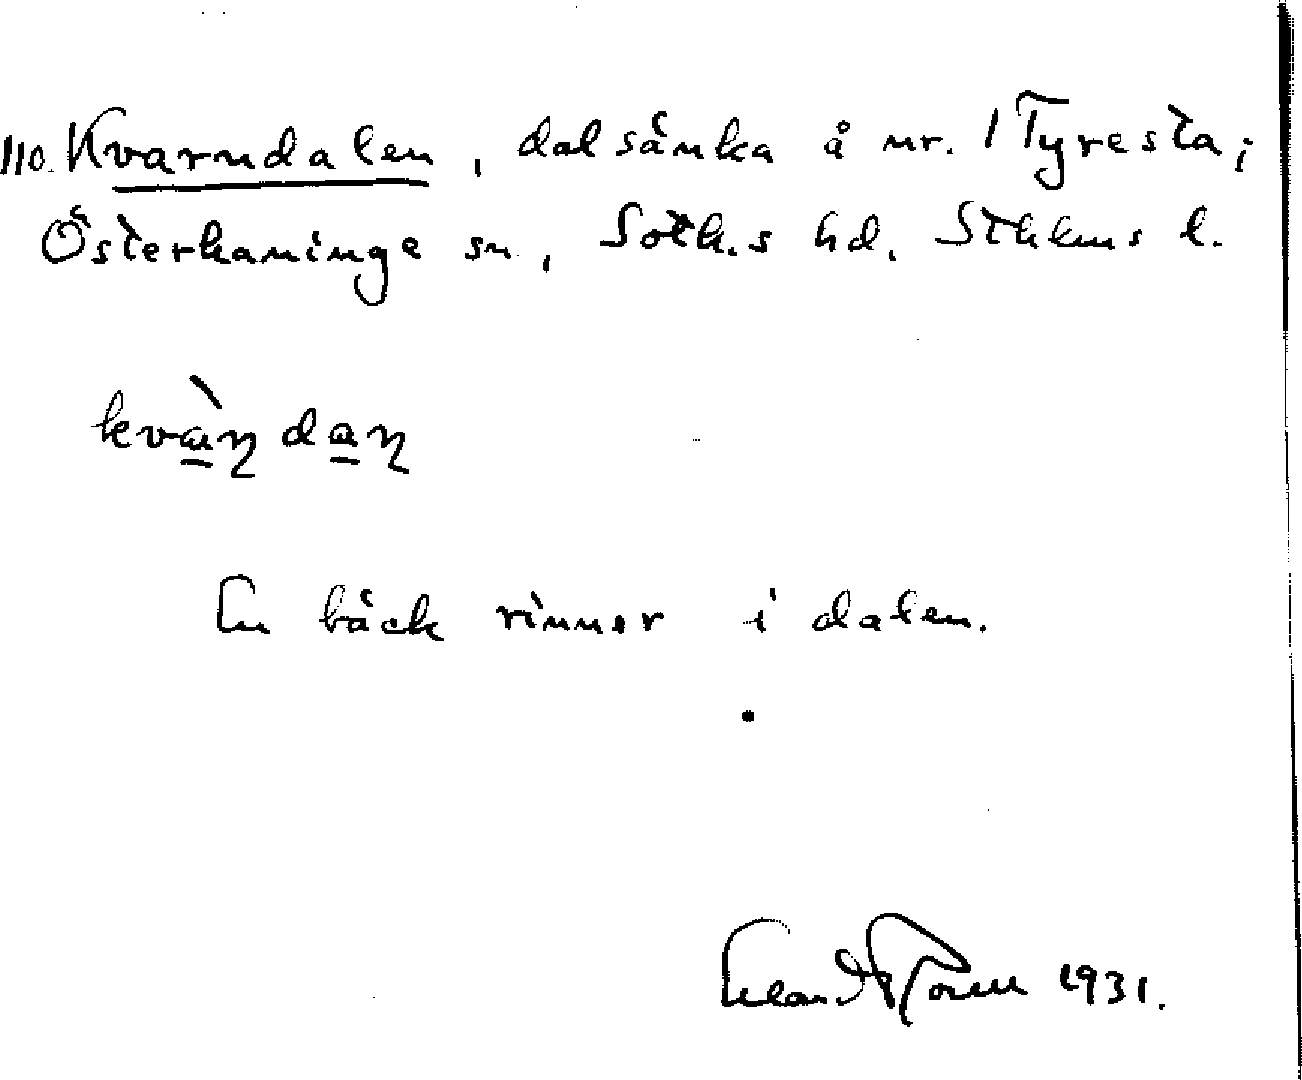 110. Kvarndalen, dalsänka å nr. 1 Tyresta;
Österhaninge sn., Soth.s hd. Sthlms l.
kvàṉ daṉ
En bäck rinner i dalen.
1931.